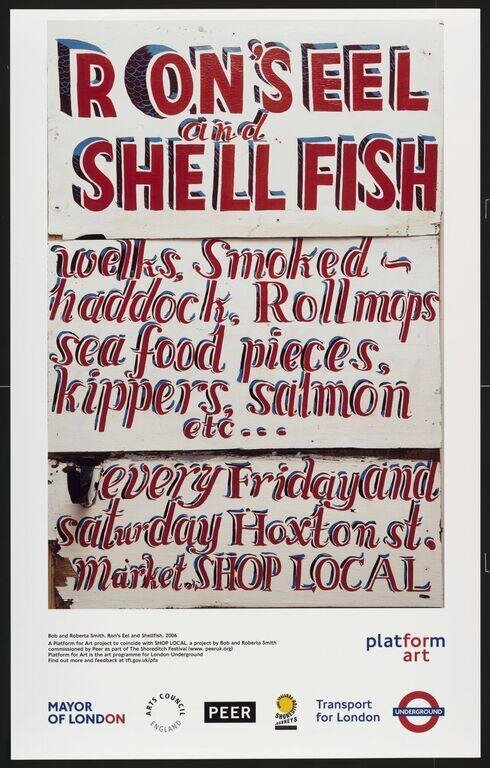 RON'S EEL
and
SHELL FISH
welks, Smoked
haddock, Rollmops
sea food pieces,
kippers, salmon
etc...
every Friday and
saturday Hoxton st.
Market. SHOP LOCAL
Bob and Roberta Smith, Ron's Eel and Shellfish, 2006
A Platform for Art project to coincide with SHOP LOCAL, a project by Bob and Roberta Smith
commissioned by Peer as part of The Shoreditch Festival (www. peeruk.org)
Platform for Art is the art programme for London Underground
Find out more and feedback at tfl.gov.uk/pfa
platform
art
MAYOR
OF LONDON
ARTS COUNCIL
ENGLAND
PEER
SHOREDITCH
Transport
for London
UNDERGROUND